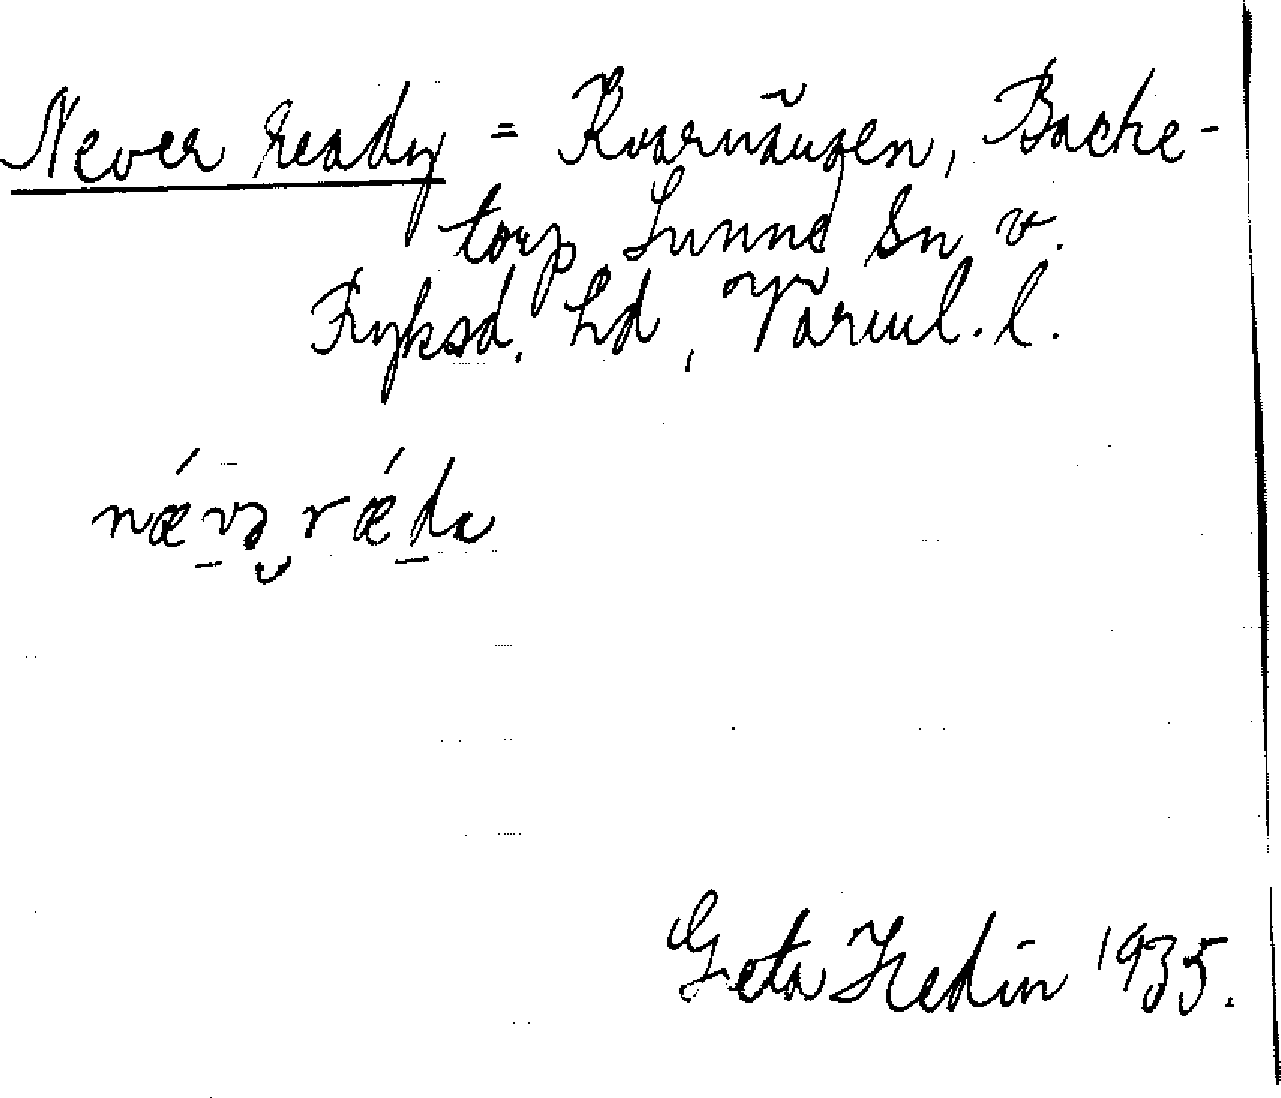 Never ready = Kvarnängen, Backe-
torp Sunne Sn v.
Fryksd. hd, Värml. l.
nǽvə rǽda
Greta Hedin 1935.